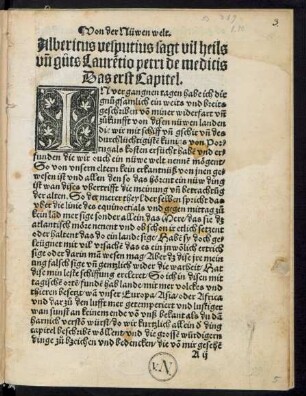 Von der Nüwen welt.
Albericus vesputius sagt vil heils
vñ gůts Laurentio petri de medicis
Das erst Capitel.
IN vergangnen tagen habe ich dir
gnůgsamlich ein weits und breits
geschriben võn miner widerfart vñ
zůkunfft von disen nüwen landen
die wir mit schiff vñ gschir vñ des
durchlüchtigiste künigs von Por
tugals kosten ersůcht habē und er=
funden die wir ouch ein nüw welt nennē mögent
So von unsern eltern kein erkantnüß von jnen ge
wesen ist und allen den so das hörent ein nüw ding
ist wan dises übertrifft die meinung vñ betrachtūg
der alten. So der merer theyl der selben spricht das
über die linie des equinoctials und gegen mittag zů
kein land mer sige sonder allein das Mere / das sie dz
atlantisch möre nenent und ob schon ir etlich setzent
oder haltent das do ein lande sige Habē sy doch ge
leügnet mit vil ursachē das es ein jnwōlich ertrich
sige oder darin mā wesen mag Aber dz dise jre mein
ung falsch sige vñ gentzlich wider die warheit Hat
dise min letste schiffung ercleret So ich in disen mit
tagische orte fundē hab lande mit mer volckes und
thieren besetzt wā unser Europa / Asia / oder Africa
und dar zů den lufft mer getemperiert und lustiger
wan sunst an keinem ende võ unß bekāt als du dā
harnoch verstō würst / do wir kürtzlich allein d ding
capitel beschribē wöllent und die grosse würdigern
dinge zů bzeichen und bedencken / die võ mir gesehē
A ij